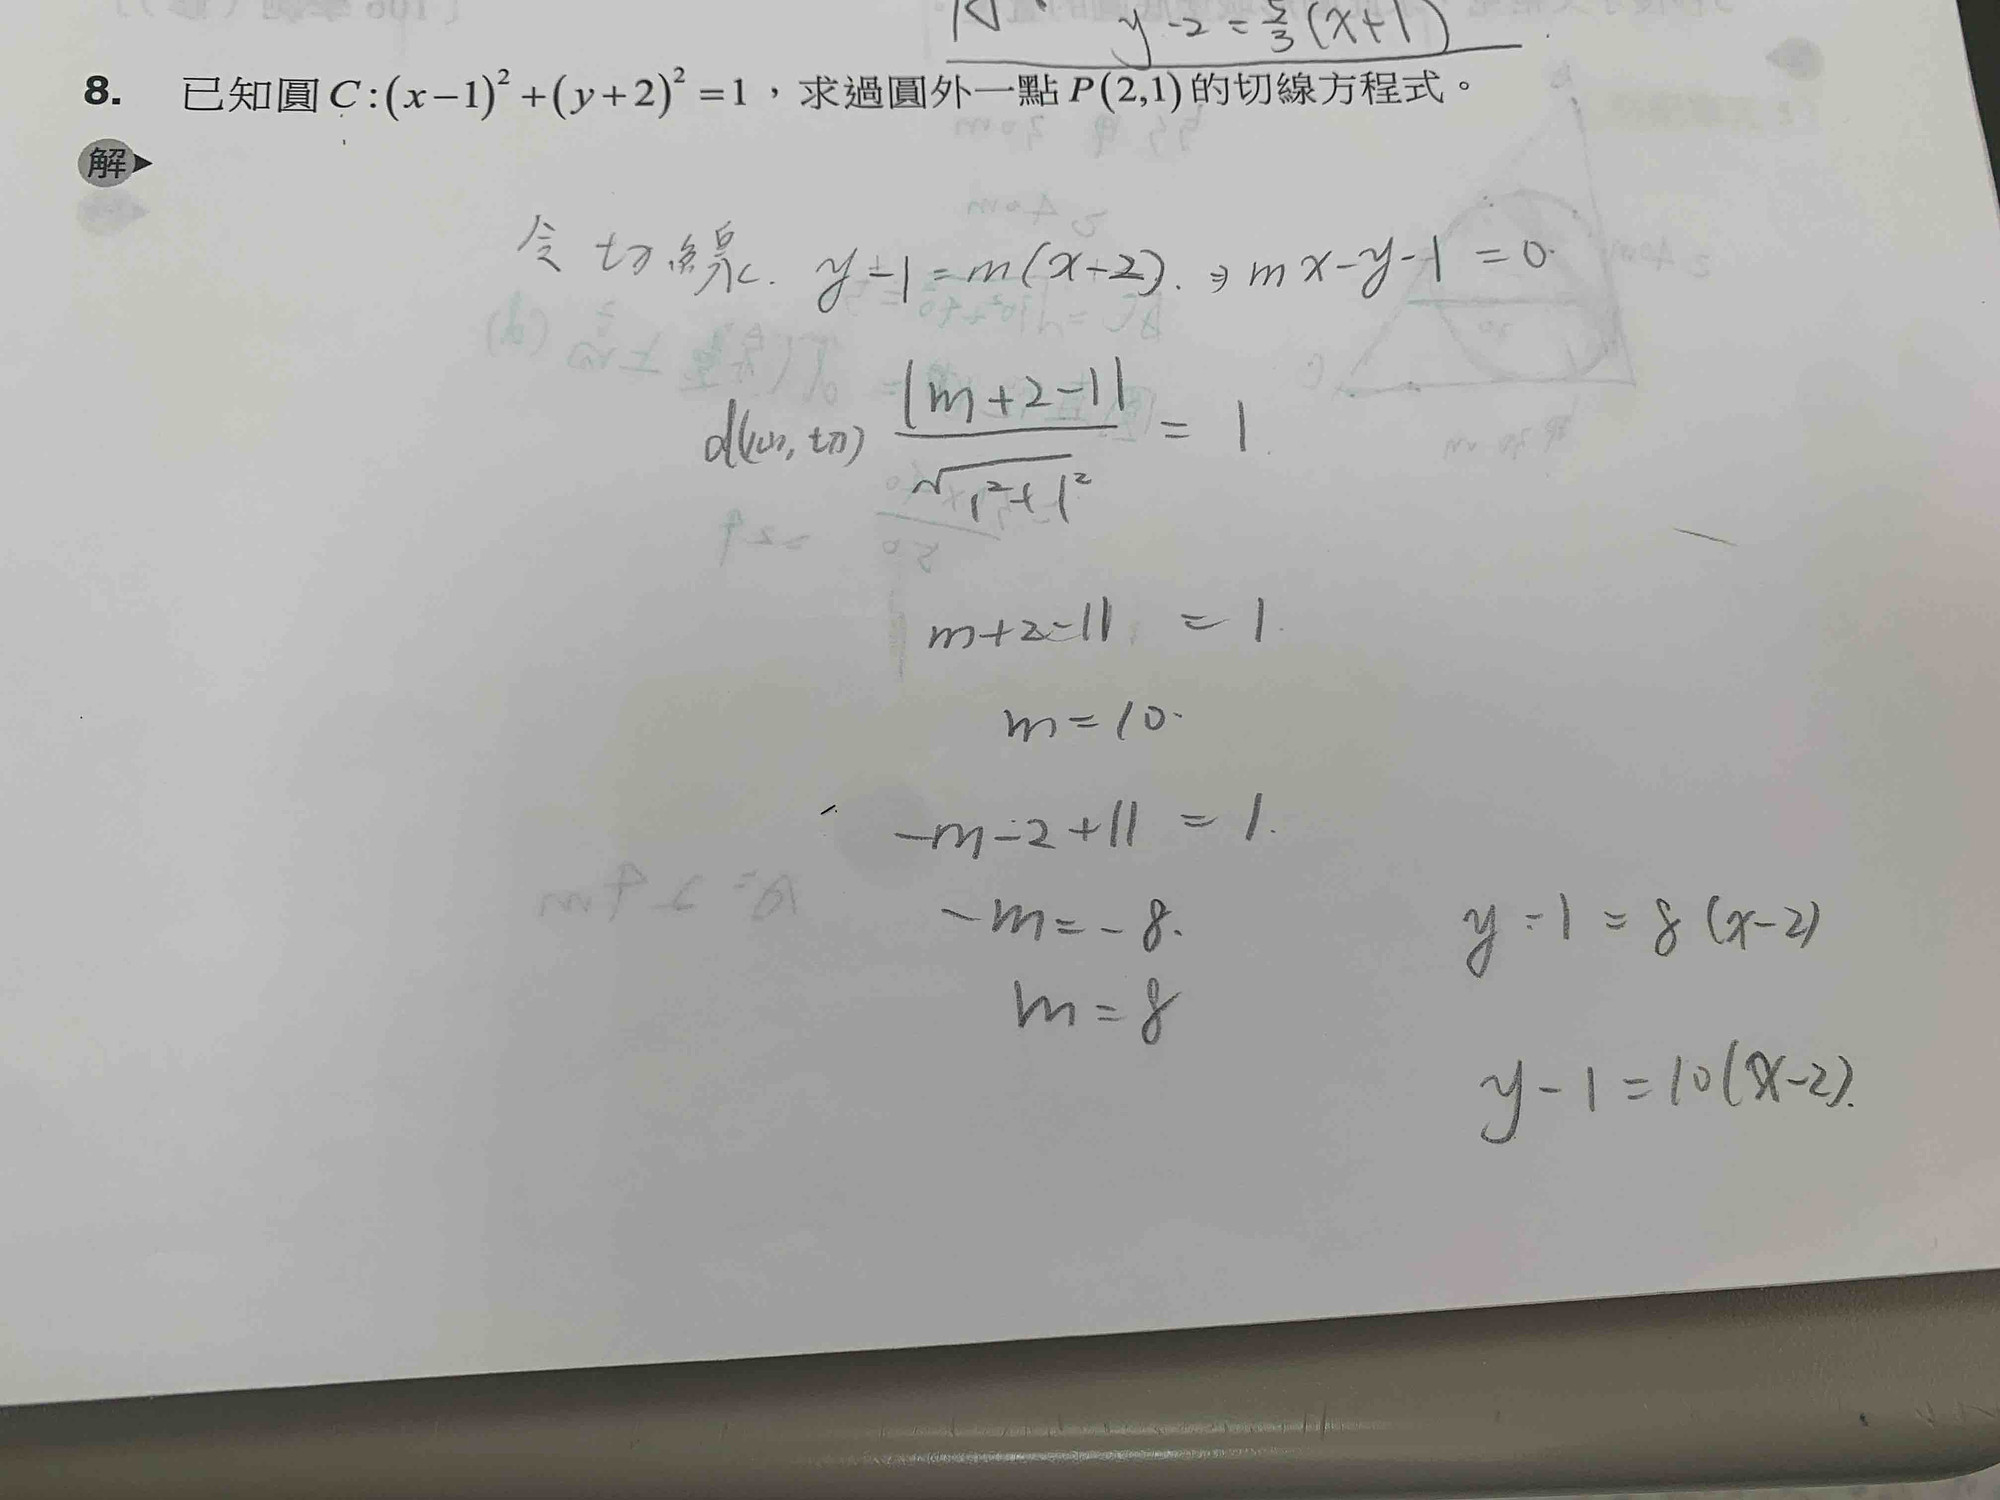 y-2=5/3(x+1)
8. 已知圓C:(x-1)²+(y+2)²=1，求過圓外一點P(2,1)的切線方程式。
解
令切線. y-1=m(x-2). ⇒ mx-y-1=0.
d(心,切) |m+2-1|/√(1²+1²) = 1.
m+2-11 = 1.
m=10.
-m-2+11 = 1.
-m=-8.
y-1=8(x-2)
m=8
y-1=10(x-2).